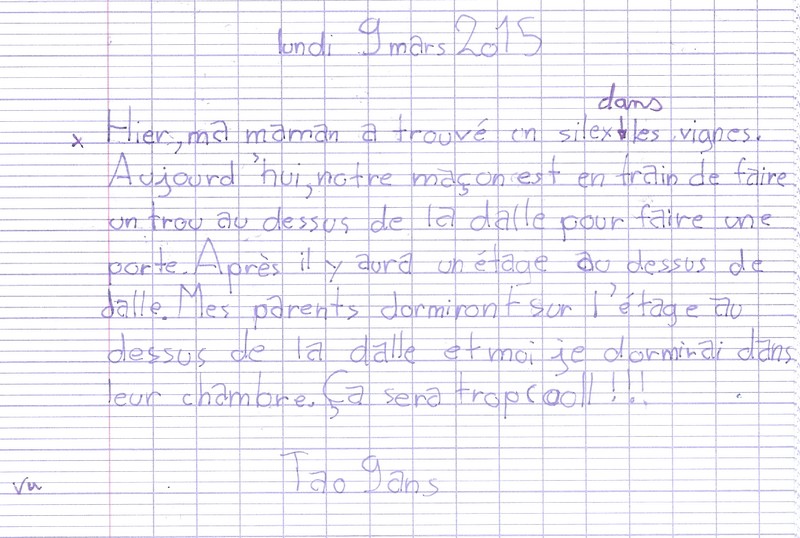 lundi 9 mars 2015
dans
x Hier, ma maman a trouvé un silex les vignes.
Aujourd'hui, notre maçon est en train de faire
un trou au dessus de la dalle pour faire une
porte. Après il y aura un étage au dessus de
dalle. Mes parents dormiront sur l'étage au
dessus de la dalle et moi je dormirai dans
leur chambre. Ça sera trop cooll !!!
Tao 9 ans
vu